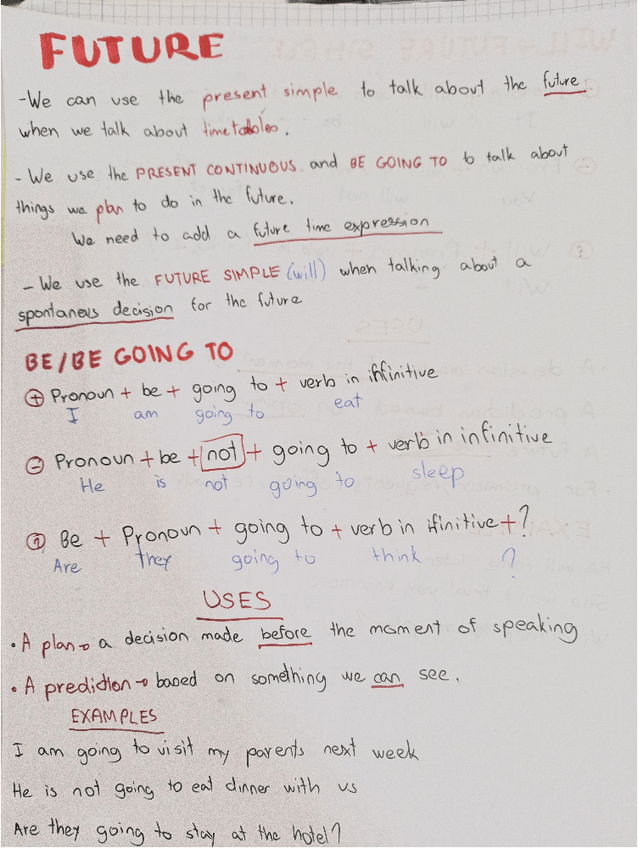 FUTURE
-We can use the present simple to talk about the future
when we talk about timetables.
- We use the PRESENT CONTINUOUS and BE GOING TO to talk about
things we plan to do in the future.
We need to add a future time expression
- We use the FUTURE SIMPLE (will) when talking about a
spontaneus decision for the future
BE/BE GOING TO
+ Pronoun + be + going to + verb in ifinitive
I am going to eat
- Pronoun + be + not + going to + verb in infinitive
He is not going to sleep
? Be + Pronoun + going to + verb in ifinitive + ?
Are they going to think ?
USES
• A plan → a decision made before the moment of speaking
• A prediction → based on something we can see.
EXAMPLES
I am going to visit my parents next week
He is not going to eat dinner with us
Are they going to stay at the hotel?